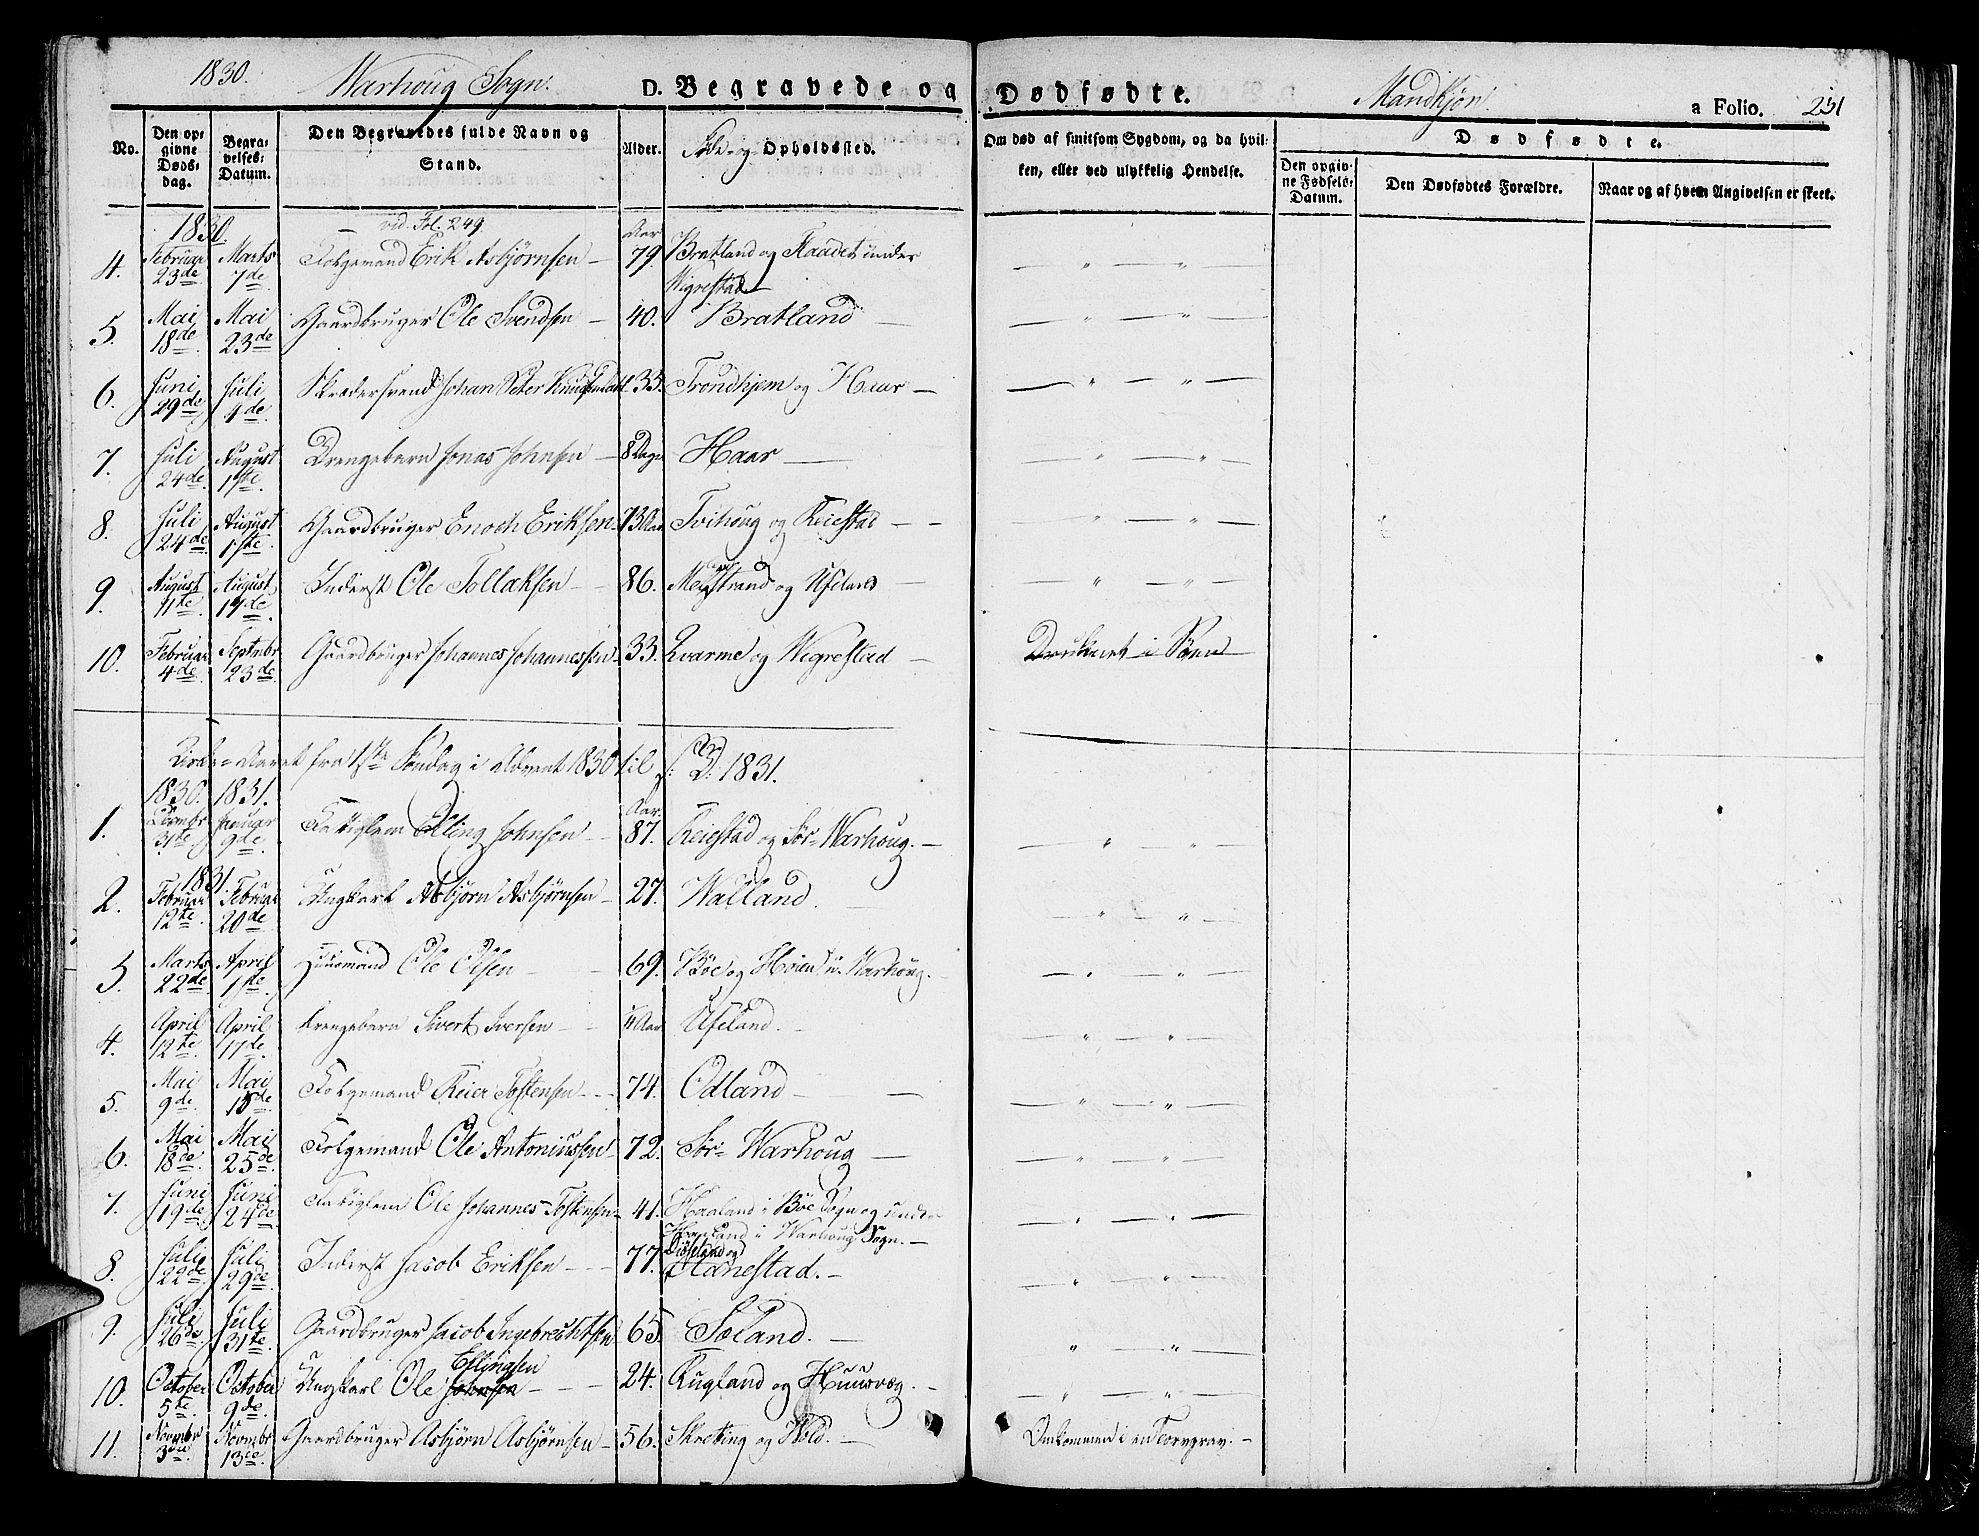 1830. Warhoug Sogn. D. Begravede og Dødfødte. Mandkjøn. a Folio. 251
No. Den opgivne Dødsdag. Begravelses-Datum. Den Begravedes fulde Navn og Stand. Alder. Føde- og Opholdssted. Om død af smitsom Sygdom, og da hvilken, eller ved ulykkelig Hendelse. Dødfødte.
Den opgivne Fødsels-Datum. Den Dødfødtes Forældre. Naar og af hvem Angivelsen er skeet.
1830. vid. Fol. 249 Aar
4. Februar 23de Marts 7de Folgemand Erik Asbjørnsen 79. Bratland og Staadet under Wigrestad
5. Mai 18de Mai 23de Gaardbruger Ole Svendsen 40. Bratland
6. Juni 29de Juli 4de Skrædersvend Johan Peter 35. Trondhjem og Haar
7. Juli 24de August 1ste Drengebarn Jonas Johnsen 8 Dage Haar
8. Juli 24de August 1ste Gaardbruger Enoch Eriksen 73 Aar Tvihoug og Reiestad
9. August 11te August 17de Inderst Ole Tollaksen 86. og Ueland
10. Februar 4de Septmbr 23de Gaardbruger Johannes Johannessen 33. Qvarme og Wigrestad Druknet i Søen
Kirke-Aaret fra 1ste Søndag i Advent 1830 til s: D: 1831.
1830. 1831. Aar.
1. Decmbr 31te Januar 9de Fattiglem Elling Johnsen 87. Reiestad og Sør-Warhoug.
1831.
2. Februar 12te Februar 20de Ungkarl Asbjørn Asbjørnsen 27. Walland.
3. Marts 22de April 1ste Huusmand Ole Olsen 69. Bøe og Høien u. Warhoug.
4. April 12te April 17de Drengebarn Sivert Iversen Aar Ueland.
5. Mai 9de Mai 15de Folgemand Reier Tostensen 74. Odland
6. Mai 18de Mai 25de Folgemand Ole Antoniussen 72. Sør-Warhoug
7. Juni 19de Juni 24de Fattiglem Ole Johannes Tostensen 41. Haaland i Bøe Sogn og under
Haaland i Warhoug Sogn.
8. Juli 22de Juli 29de Inderst Jacob Eriksen 77. og Hanestad.
9. Juli 26de Juli 31te Gaardbruger Jacob Ingebrechtsen 65. Søland.
10. October 5te October 9de Ungkarl Ole Johnsen Ellingsen 24. Rugland og Huusvæg.
11. Novmbr 3die Novmbr 13de Gaardbruger Asbjørn Asbjørnsen 56. Skreting og Hold. Omkommen i en Torvgrav.